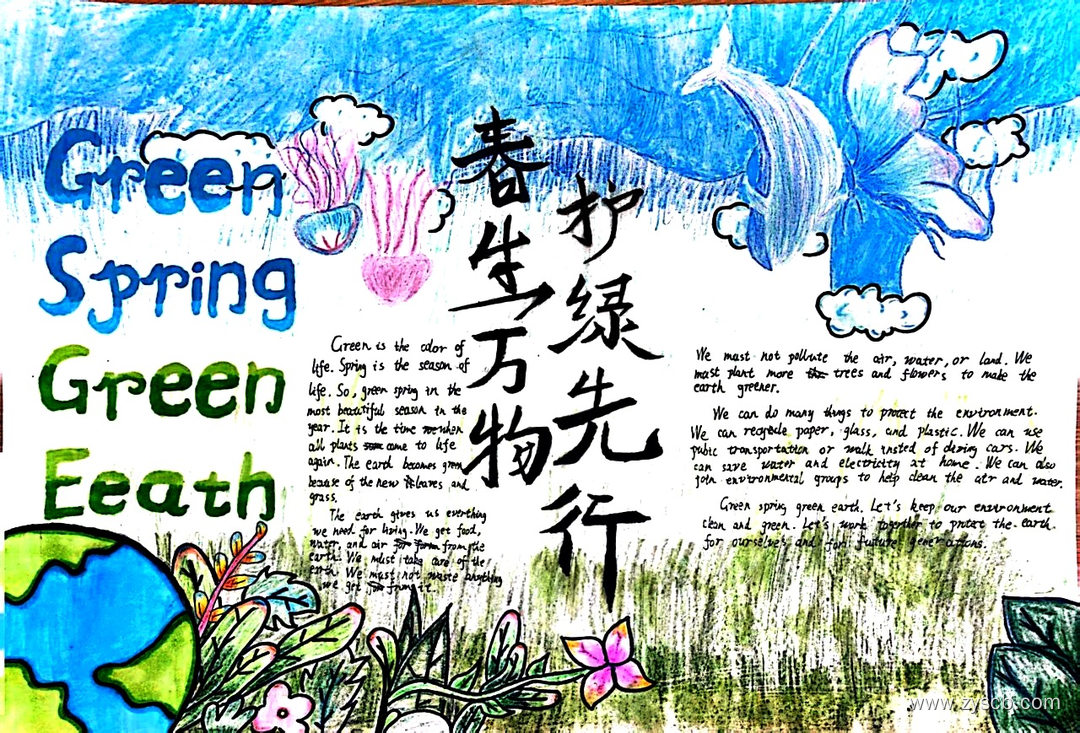 Green
Spring
Green
Eeath
春生万物
护绿先行
Green is the color of
life. Spring is the season of
life. So, green spring in the
most beautiful season in the
year. It is the time when
all plants come to life
again. The earth becomes green
because of the new leaves and
grass.
The earth gives us everthing
we need for living. We get food,
water, and air from the
earth. We must take care of the
earth. We must not waste anything
we get from it.
We must not pollute the air, water, or land. We
must plant more trees and flowers to make the
earth greener.
We can do many things to protect the environment.
We can recycle paper, glass, and plastic. We can use
public transportation or walk insted of dering cars. We
can save water and electricity at home. We can also
join environmental groups to help clean the air and water.
Green spring green earth. Let's keep our environment
clean and green. Let's work together to protect the earth.
for ourselves and for future generations.
www.zyscb.com